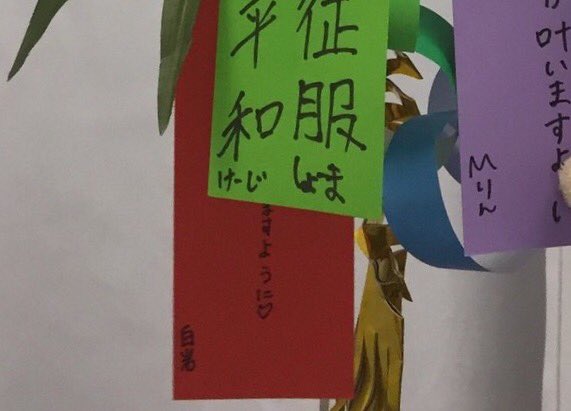 が叶いますよ
し
Mりん
征服
しょま
平和
けーじ
ますように♡
白岩